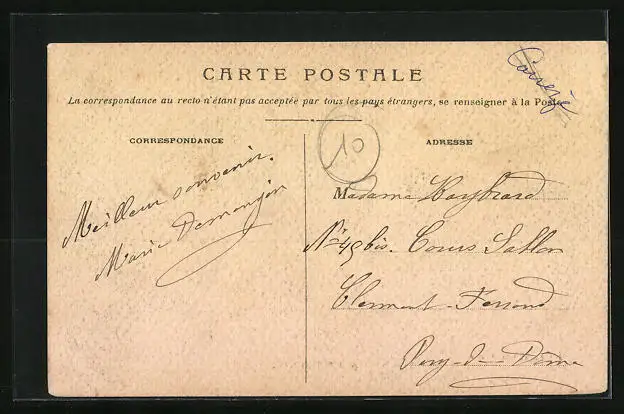 CARTE POSTALE
La correspondance au recto n'étant pas acceptée par tous les pays étrangers, se renseigner à la Poste
CORRESPONDANCE
ADRESSE
10
Meilleur souvenir.
Marie Demangin
Madame
Nº 49 bis. Cours Sablon
Clermont-Ferrand
Puy-de-Dôme